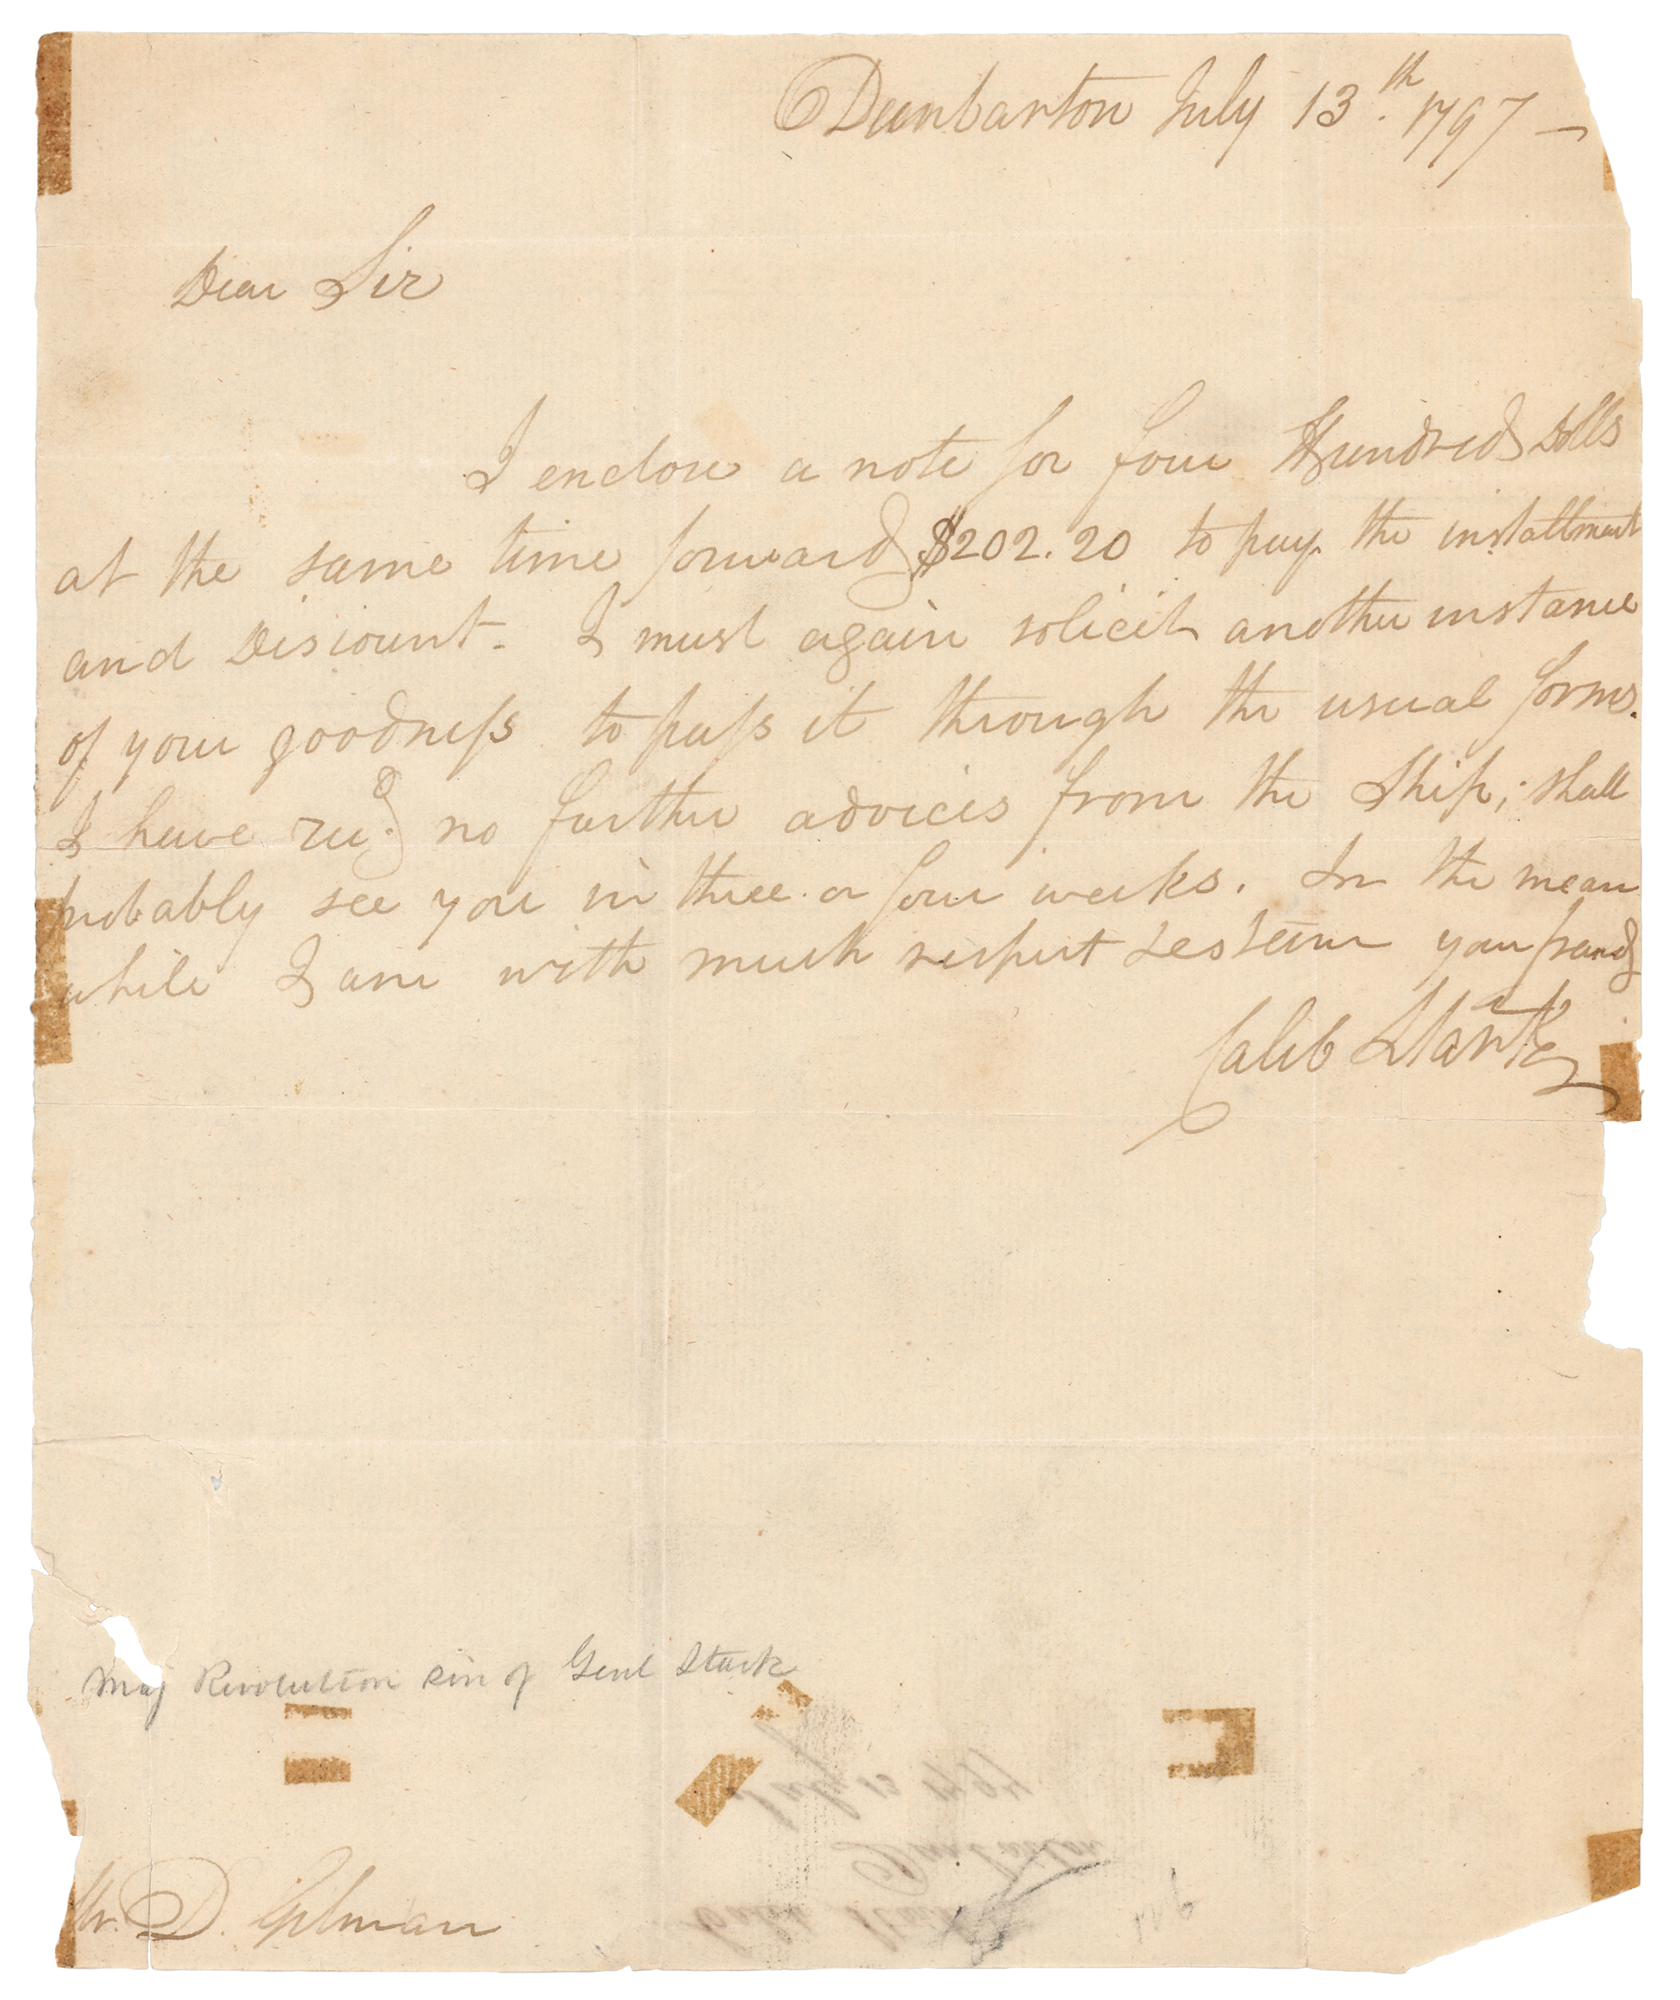 Dunbarton July 13th. 1797 —
Dear Sir
I enclose a note for four Hundred Dolls
at the same time forward $202.20 to pay the installment
and Discount - I must again solicit another instance
of your goodneſs to paſs it through the usual forms.
I have recd. no further advices from the Ship; shall
probably see you in three or four weeks. In the mean
while I am with much respect & esteem your friend
Caleb Stark
Maj Revolution son of Genl Stark
Mr. D. Gilman